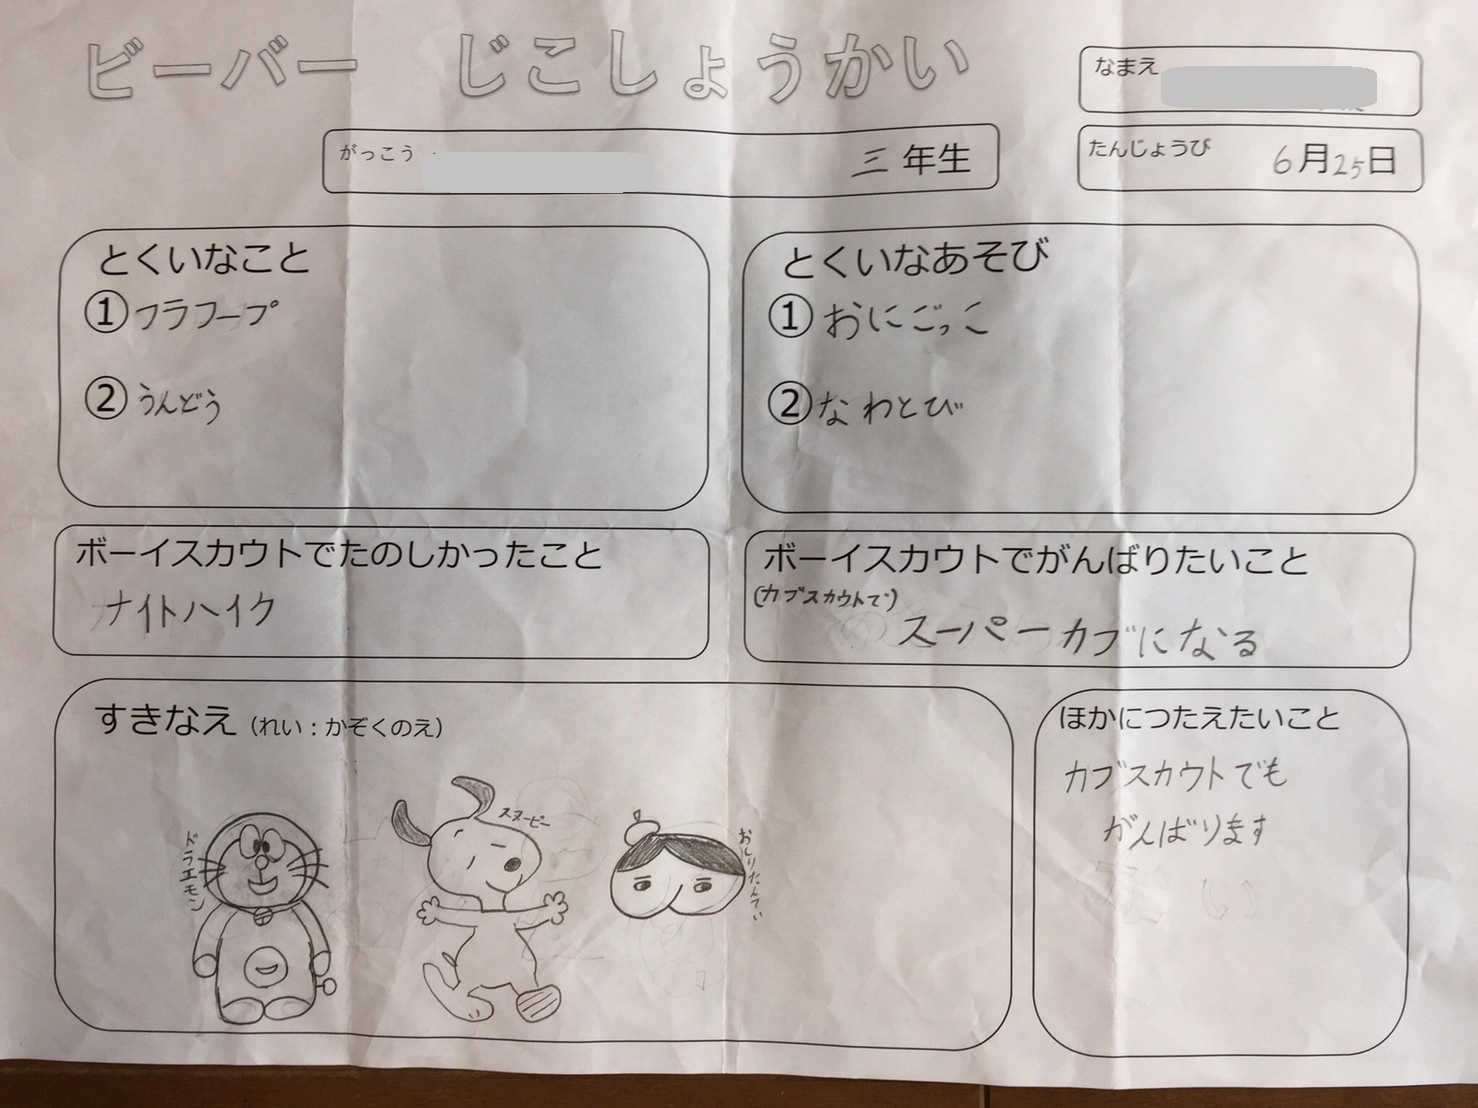 ビーバー じこしょうかい
なまえ
がっこう 三年生
たんじょうび 6月25日
とくいなこと
①フラフープ
②うんどう
とくいなあそび
①おにごっこ
②なわとび
ボーイスカウトでたのしかったこと
ナイトハイク
ボーイスカウトでがんばりたいこと
(カブスカウトで)
スーパーカブになる
すきなえ(れい:かぞくのえ)
ドラエモン
スヌーピー
おしりたんてい
ほかにつたえたいこと
カブスカウトでも
がんばります